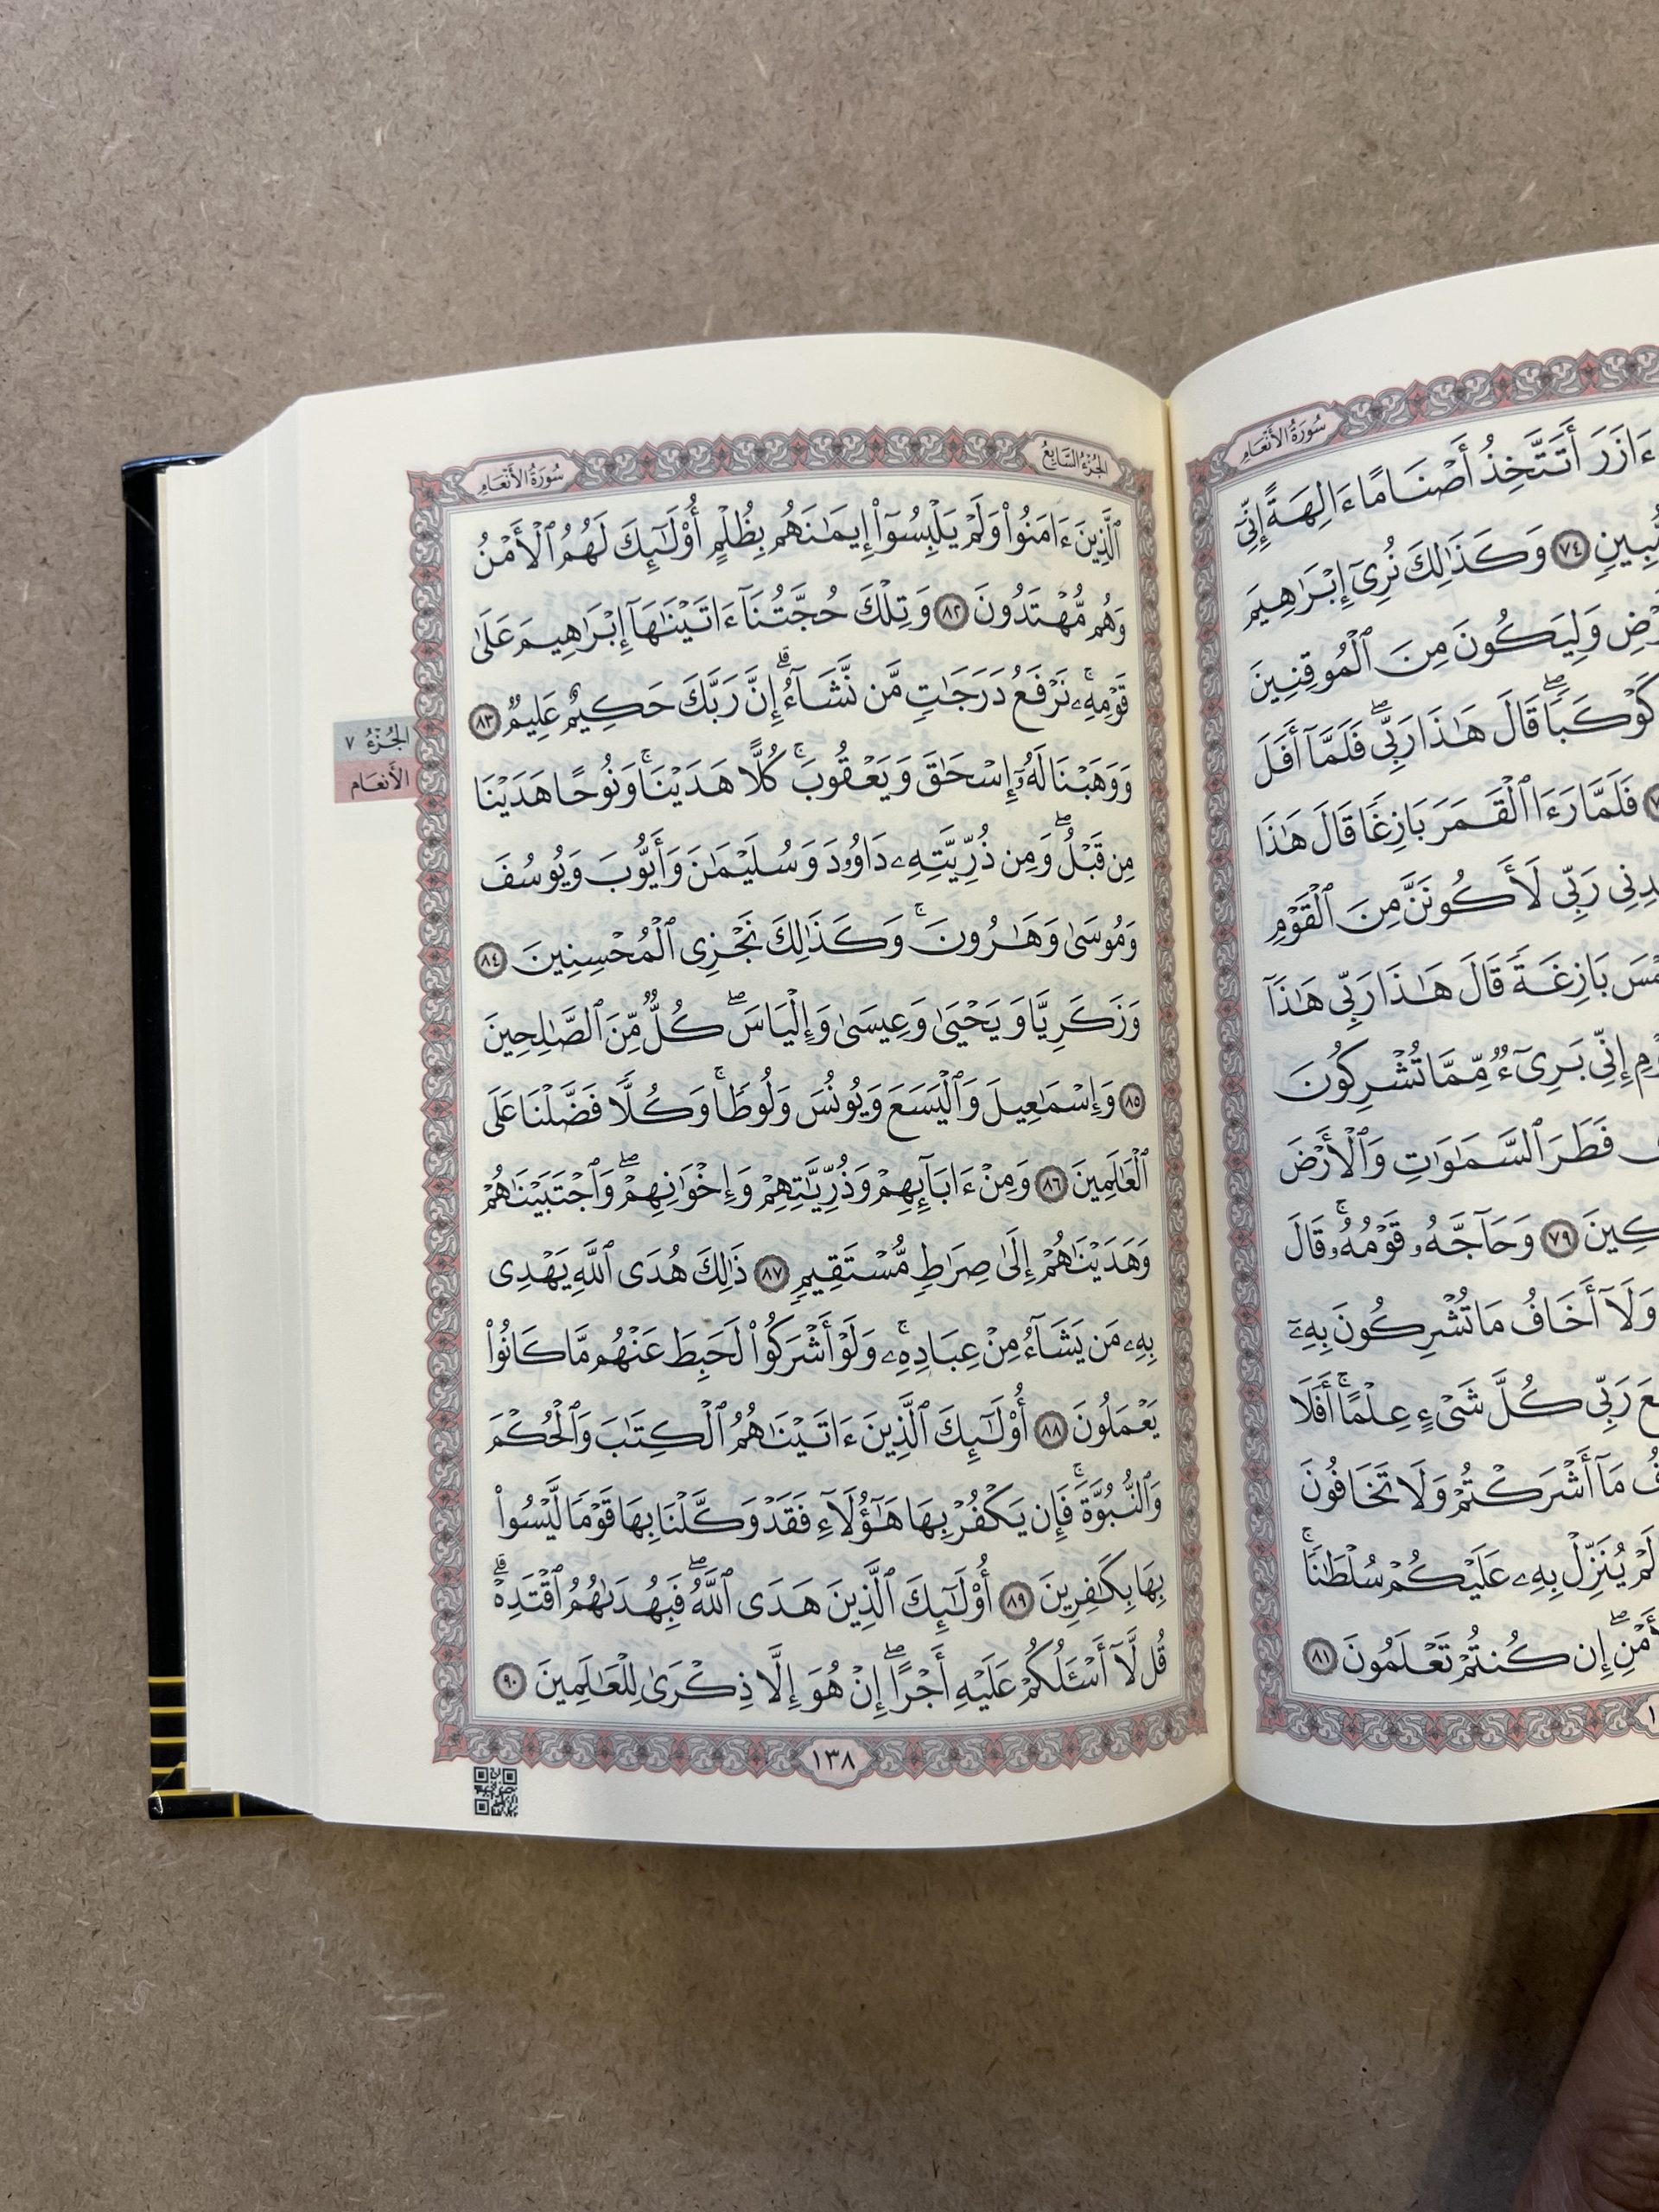 سُورَةُ الأَنْعَامِ
ءَازَرَ أَتَتَّخِذُ أَصْنَامًا ءَالِهَةً إِنِّيٓ
مُّبِينٍ ٧٤ وَكَذَٰلِكَ نُرِىٓ إِبْرَٰهِيمَ
وَلِيَكُونَ مِنَ ٱلْمُوقِنِينَ
كَوْكَبًاۖ قَالَ هَٰذَا رَبِّىۖ فَلَمَّآ أَفَلَ
فَلَمَّا رَءَا ٱلْقَمَرَ بَازِغًا قَالَ هَٰذَا
رَبِّى لَأَكُونَنَّ مِنَ ٱلْقَوْمِ
بَازِغَةً قَالَ هَٰذَا رَبِّى هَٰذَآ
إِنِّى بَرِىٓءٌ مِّمَّا تُشْرِكُونَ
فَطَرَ ٱلسَّمَٰوَٰتِ وَٱلْأَرْضَ
٧٩ وَحَآجَّهُۥ قَوْمُهُۥۚ قَالَ
وَلَآ أَخَافُ مَا تُشْرِكُونَ بِهِۦٓ
رَبِّى كُلَّ شَىْءٍ عِلْمًاۚ أَفَلَا
مَآ أَشْرَكْتُمْ وَلَا تَخَافُونَ
لَمْ يُنَزِّلْ بِهِۦ عَلَيْكُمْ سُلْطَٰنًاۚ
إِن كُنتُمْ تَعْلَمُونَ ٨١
الجُزْءُ السَّابِعُ
سُورَةُ الأَنْعَامِ
ٱلَّذِينَ ءَامَنُوا۟ وَلَمْ يَلْبِسُوٓا۟ إِيمَٰنَهُم بِظُلْمٍ أُو۟لَٰٓئِكَ لَهُمُ ٱلْأَمْنُ
وَهُم مُّهْتَدُونَ ٨٢ وَتِلْكَ حُجَّتُنَآ ءَاتَيْنَٰهَآ إِبْرَٰهِيمَ عَلَىٰ
قَوْمِهِۦۚ نَرْفَعُ دَرَجَٰتٍ مَّن نَّشَآءُۗ إِنَّ رَبَّكَ حَكِيمٌ عَلِيمٌ ٨٣
وَوَهَبْنَا لَهُۥٓ إِسْحَٰقَ وَيَعْقُوبَۚ كُلًّا هَدَيْنَاۚ وَنُوحًا هَدَيْنَا
مِن قَبْلُۖ وَمِن ذُرِّيَّتِهِۦ دَاوُۥدَ وَسُلَيْمَٰنَ وَأَيُّوبَ وَيُوسُفَ
وَمُوسَىٰ وَهَٰرُونَۚ وَكَذَٰلِكَ نَجْزِى ٱلْمُحْسِنِينَ ٨٤
وَزَكَرِيَّا وَيَحْيَىٰ وَعِيسَىٰ وَإِلْيَاسَۖ كُلٌّ مِّنَ ٱلصَّٰلِحِينَ
٨٥ وَإِسْمَٰعِيلَ وَٱلْيَسَعَ وَيُونُسَ وَلُوطًاۚ وَكُلًّا فَضَّلْنَا عَلَى
ٱلْعَٰلَمِينَ ٨٦ وَمِنْ ءَابَآئِهِمْ وَذُرِّيَّٰتِهِمْ وَإِخْوَٰنِهِمْۖ وَٱجْتَبَيْنَٰهُمْ
وَهَدَيْنَٰهُمْ إِلَىٰ صِرَٰطٍ مُّسْتَقِيمٍ ٨٧ ذَٰلِكَ هُدَى ٱللَّهِ يَهْدِى
بِهِۦ مَن يَشَآءُ مِنْ عِبَادِهِۦۚ وَلَوْ أَشْرَكُوا۟ لَحَبِطَ عَنْهُم مَّا كَانُوا۟
يَعْمَلُونَ ٨٨ أُو۟لَٰٓئِكَ ٱلَّذِينَ ءَاتَيْنَٰهُمُ ٱلْكِتَٰبَ وَٱلْحُكْمَ
وَٱلنُّبُوَّةَۚ فَإِن يَكْفُرْ بِهَا هَٰٓؤُلَآءِ فَقَدْ وَكَّلْنَا بِهَا قَوْمًا لَّيْسُوا۟
بِهَا بِكَٰفِرِينَ ٨٩ أُو۟لَٰٓئِكَ ٱلَّذِينَ هَدَى ٱللَّهُۖ فَبِهُدَىٰهُمُ ٱقْتَدِهْۗ
قُل لَّآ أَسْـَٔلُكُمْ عَلَيْهِ أَجْرًاۖ إِنْ هُوَ إِلَّا ذِكْرَىٰ لِلْعَٰلَمِينَ ٩٠
١٣٨
الجُزْءُ ٧
الأَنعَام